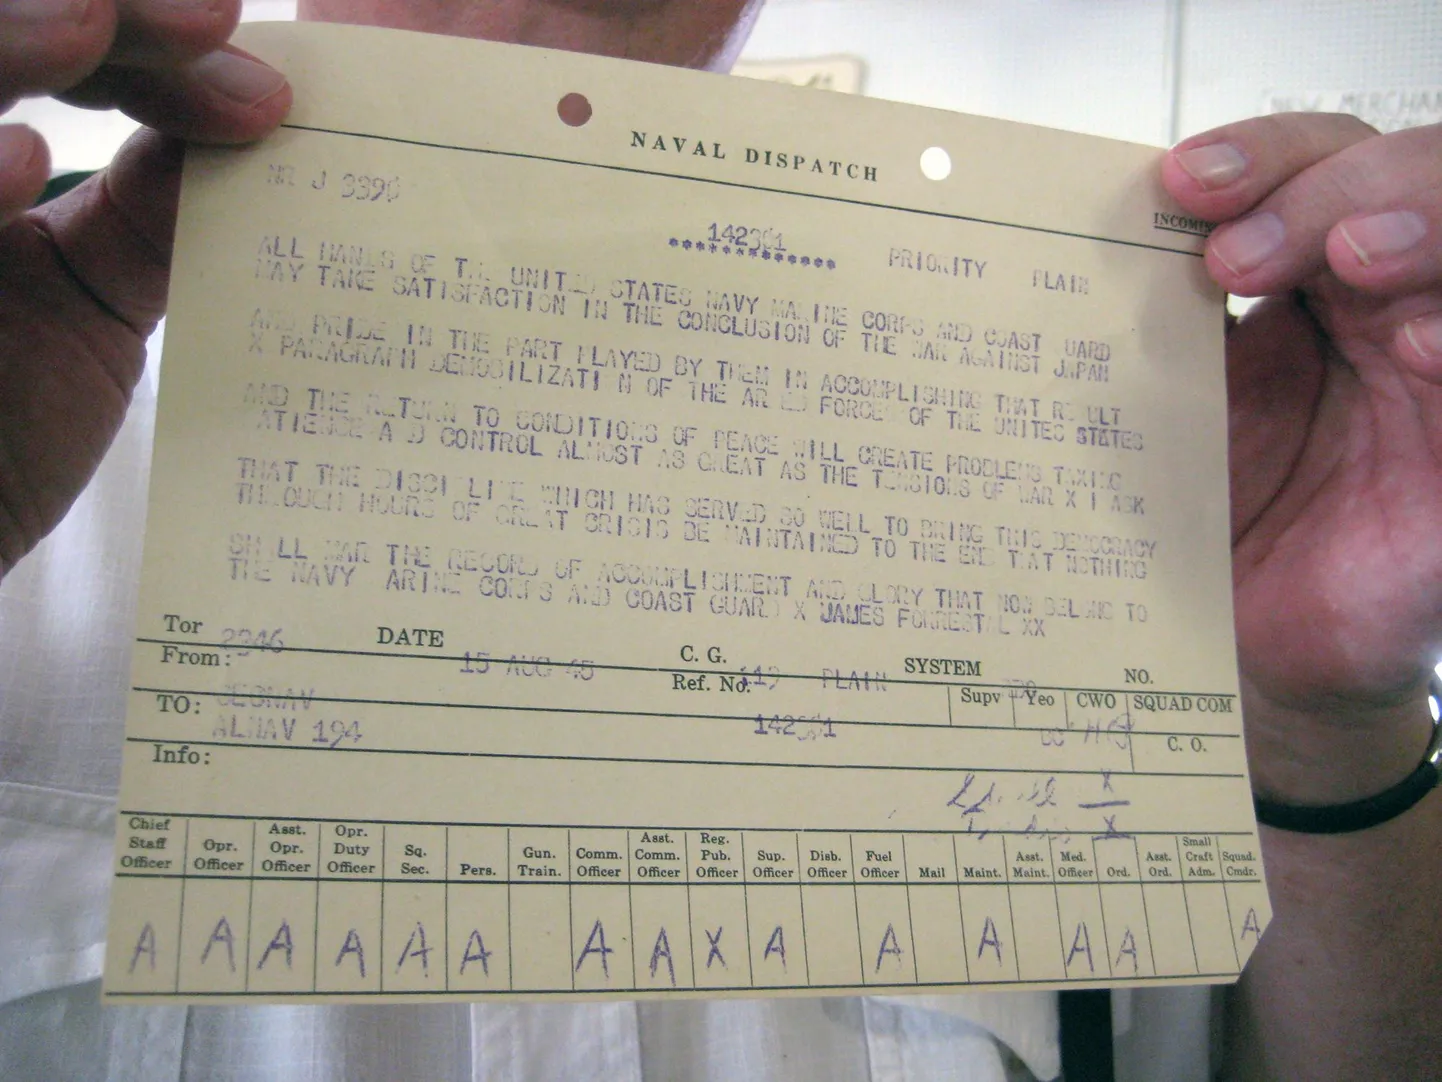 NEW MERCHAN
NAVAL DISPATCH
INCOMIN
NR J 3390
142301 PRIORITY PLAIN
*************
ALL HANDS OF THE UNITED STATES NAVY MARINE CORPS AND COAST UARD
MAY TAKE SATISFACTION IN THE CONCLUSION OF THE WAR AGAINST JAPAN
AND PRIDE IN THE PART PLAYED BY THEM IN ACCOMPLISHING THAT RESULT
X PARAGRAPH DEMOBILIZATI N OF THE ARMED FORCES OF THE UNITES STATES
AND THE RETURN TO CONDITIONS OF PEACE WILL CREATE PROBLEMS TAXING
ATIENCE A D CONTROL ALMOST AS GREAT AS THE TENSIONS OF WAR X I ASK
THAT THE DISCI LINE WHICH HAS SERVED SO WELL TO BRING THIS DEMOCRACY
THROUGH HOURS OF GREAT CRISIS BE MAINTAINED TO THE END THAT NOTHING
SHALL MAR THE RECORD OF ACCOMPLISHMENT AND GLORY THAT NOW BELONG TO
THE NAVY ARINE CORPS AND COAST GUARD X JAMES FORRESTAL XX
Tor 2346 DATE 15 AUG 45 C. G. 119 PLAIN SYSTEM NO.
From: SECNAV Ref. No. 142301 Supv Yeo CWO SQUAD COM
TO: ALNAV 194 C. O.
Info:
X
X
Chief Staff Officer Opr. Officer Asst. Opr. Officer Opr. Duty Officer Sq. Sec. Pers. Gun. Train. Comm. Officer Asst. Comm. Officer Reg. Pub. Officer Sup. Officer Disb. Officer Fuel Officer Mail Maint. Asst. Maint. Med. Officer Ord. Asst. Ord. Small Craft Adm. Squad. Cmdr.
A A A A A A A A X A A A A A A